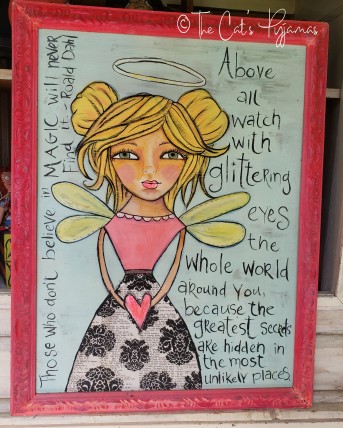 © The Cat's Pyjamas
Those who don't believe in MAGIC will never
Find It. - Roald Dahl
Above
all
watch
with
glittering
eyes
the
whole world
around you,
because the
greatest secrets
are hidden in
the most
unlikely places.